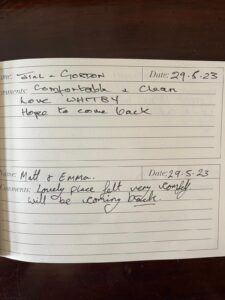 Name: JILL & GORDON Date: 29.5.23
Comments: Comfortable & Clean
Love WHITBY
Hope to come back
Name: Matt & Emma. Date: 29.5.23
Comments: Lovely place felt very comfy
will be coming back.